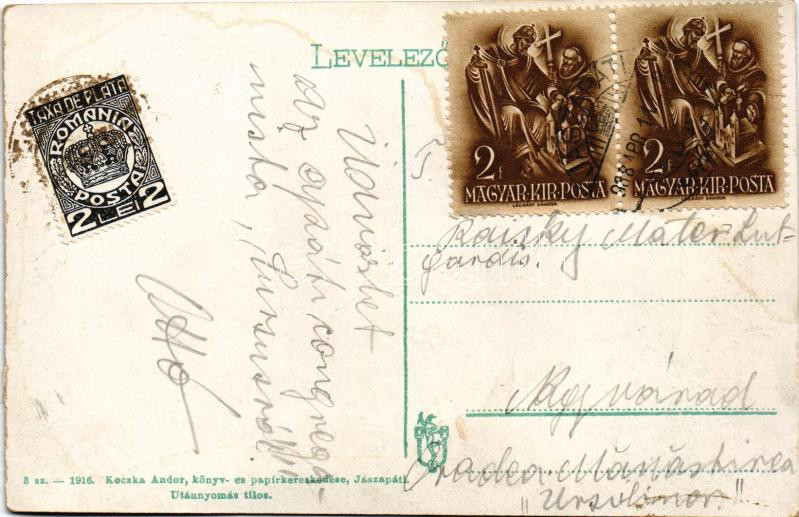 LEVELEZŐ
TAXA DE PLATA
ROMANIA
POSTA
2 LEI 2
2f
MAGYAR·KIR·POSTA
LÉGRÁDY SÁNDOR
2f
MAGYAR·KIR·POSTA
LÉGRÁDY SÁNDOR
JÁSZAPÁTI
938 APR 1
Üdvözlet
az apáti congrega-
nista,
Ottó
T.
Ransky Mater Lut-
gardis.
Nagyvárad
Oradea Mănăstirea
„Ursulinor."
8 sz. — 1916. Koczka Andor, könyv- és papírkereskedése, Jászapáti.
Utánnyomás tilos.